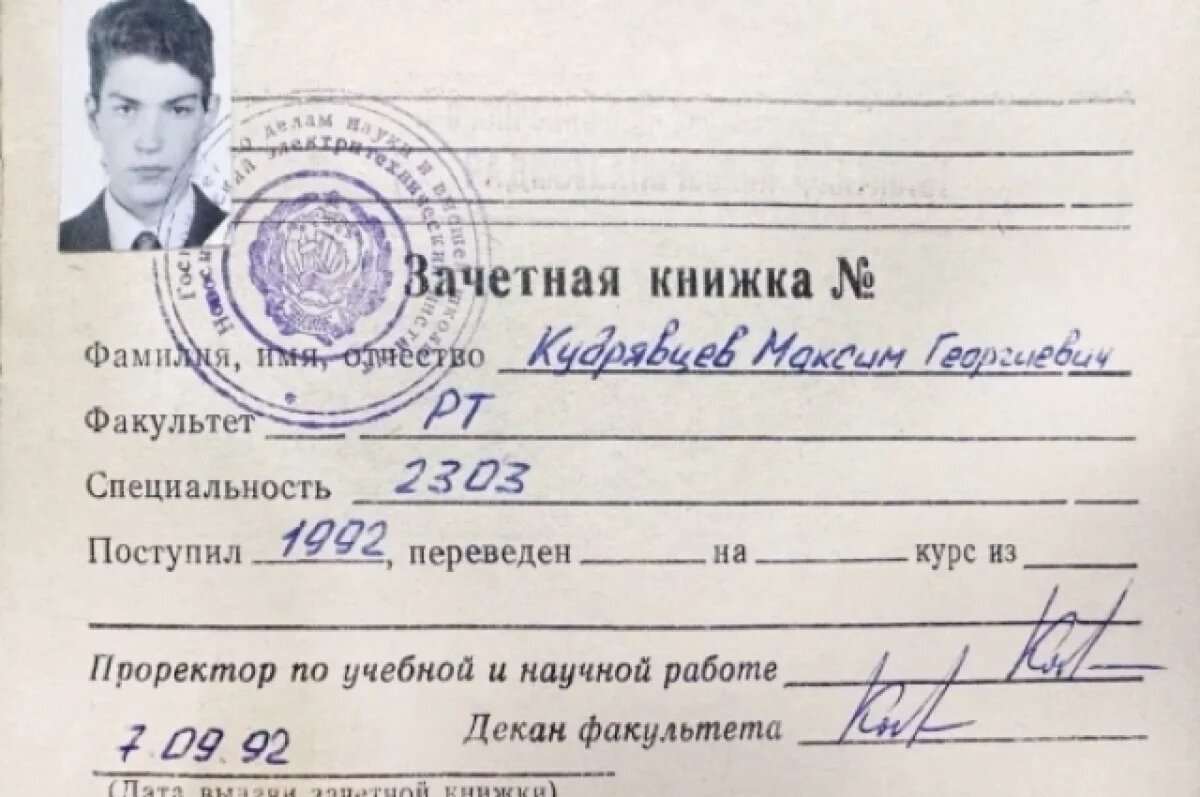 делам науки и высшей школы
электротехнический
Зачетная книжка №
Фамилия, имя, отчество Кудрявцев Максим Георгиевич
Факультет РТ
Специальность 2303
Поступил 1992, переведен на курс из
Проректор по учебной и научной работе
Декан факультета
7.09.92
(Дата выдачи зачетной книжки)